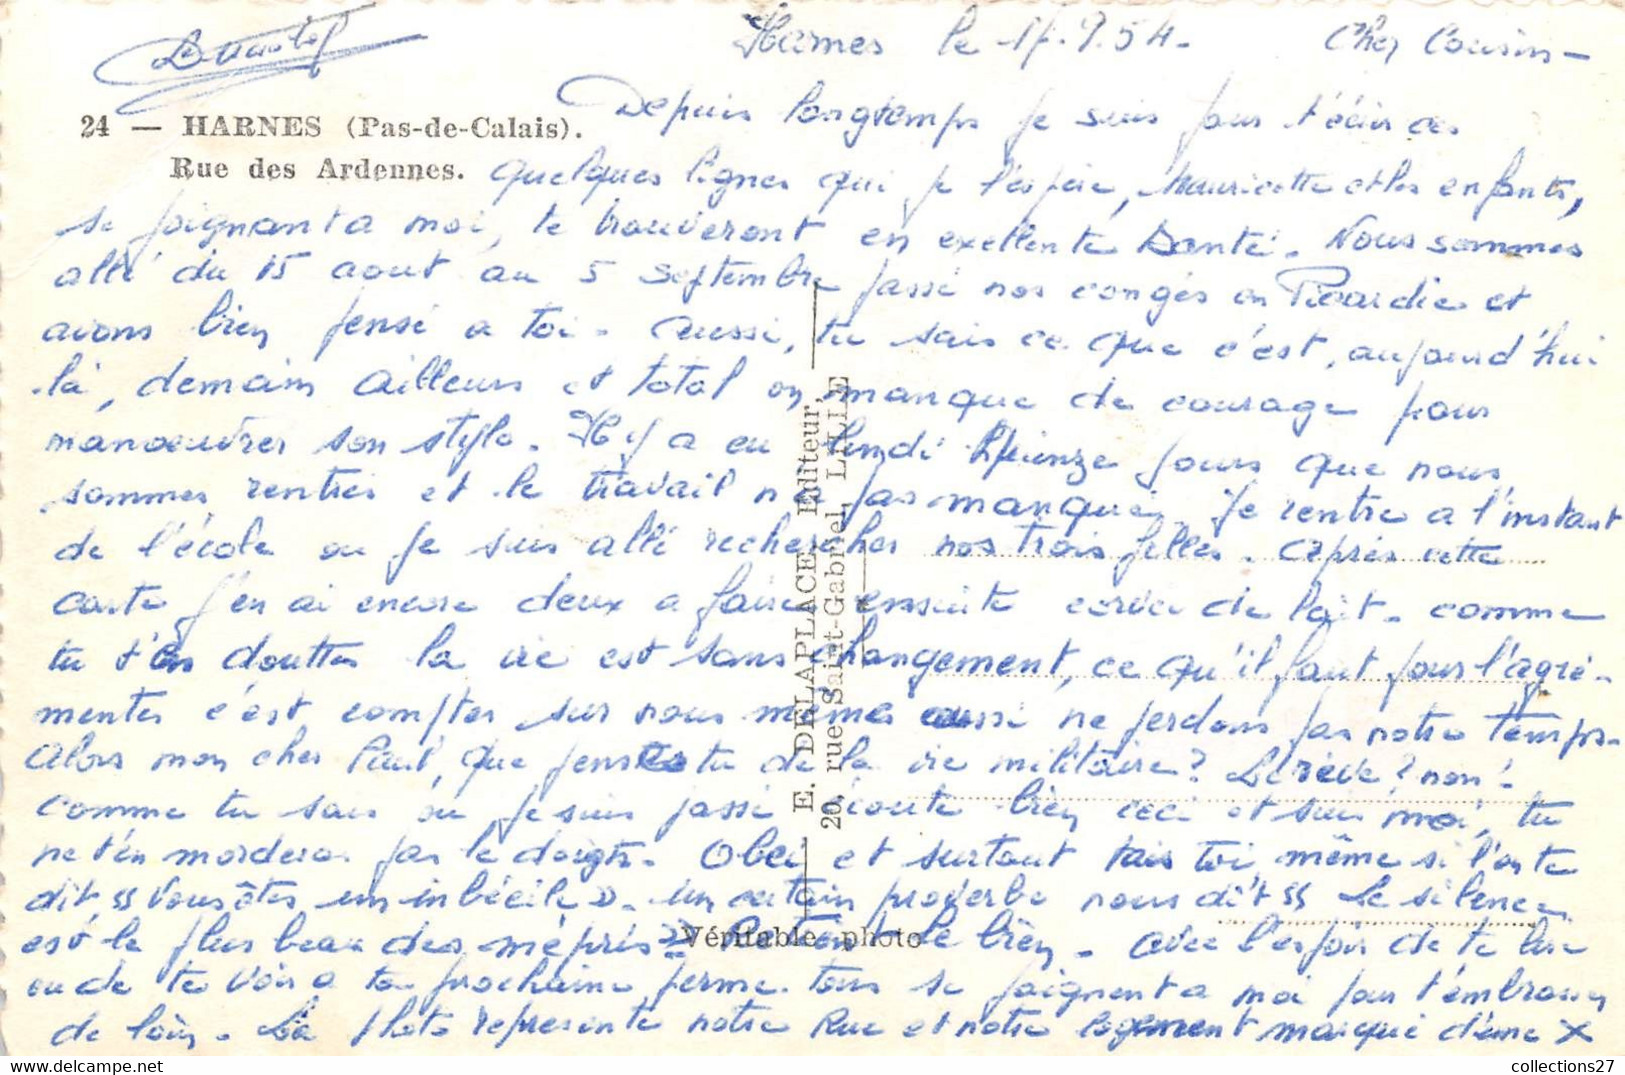 Harnes le 17.9.54. Cher Cousin -
24 — HARNES (Pas-de-Calais).
Rue des Ardennes.
Depuis longtemps je suis pour t'écrire ces
quelques lignes qui je l'espère, Mauricette et les enfants,
se joignant a moi, te trouveront en exellente Santé. Nous sommes
allé du 15 aout au 5 septembre passé nos congés en Picardie et
avons bien pensé a toi. aussi, tu sais ce que c'est, aujourd'hui
là, demain ailleurs et total on manque de courage pour
manoeuvrer son stylo. Il y a eu lundi Quinze jours que nous
sommes rentrés et le travail n'a pas manqué. Je rentre a l'instant
de l'école ou je suis allé rechercher nos trois filles. après cette
carte j'en ai encore deux a faire ensuite corvée de lait. comme
tu t'en douttes la vie est sans changement, ce qu'il faut pour l'agré-
menter c'est compter sur nous mêmes aussi ne perdons pas notre temps.
Alors mon cher Paul, que penses tu de la vie militaire? Le rêve? non!
comme tu sais où je suis passé écoute bien ceci et suis moi, tu
ne t'en morderas pas le doigts. Obei et surtout tais toi, même si l'on te
dit "Vous êtes un inbécile". un certain proverbe nous dit "Le silence
est le plus beau des mépris" Retient le bien. avec l'espoir de te lire
ou de te voir a ta prochaine perme. tous se joignent a moi pour t'embrasser
de loin. La photo represente notre Rue et notre logement marqué d'une X
E. DELAPLACE, Editeur,
20, rue Saint-Gabriel, LILLE
Véritable photo
collections27